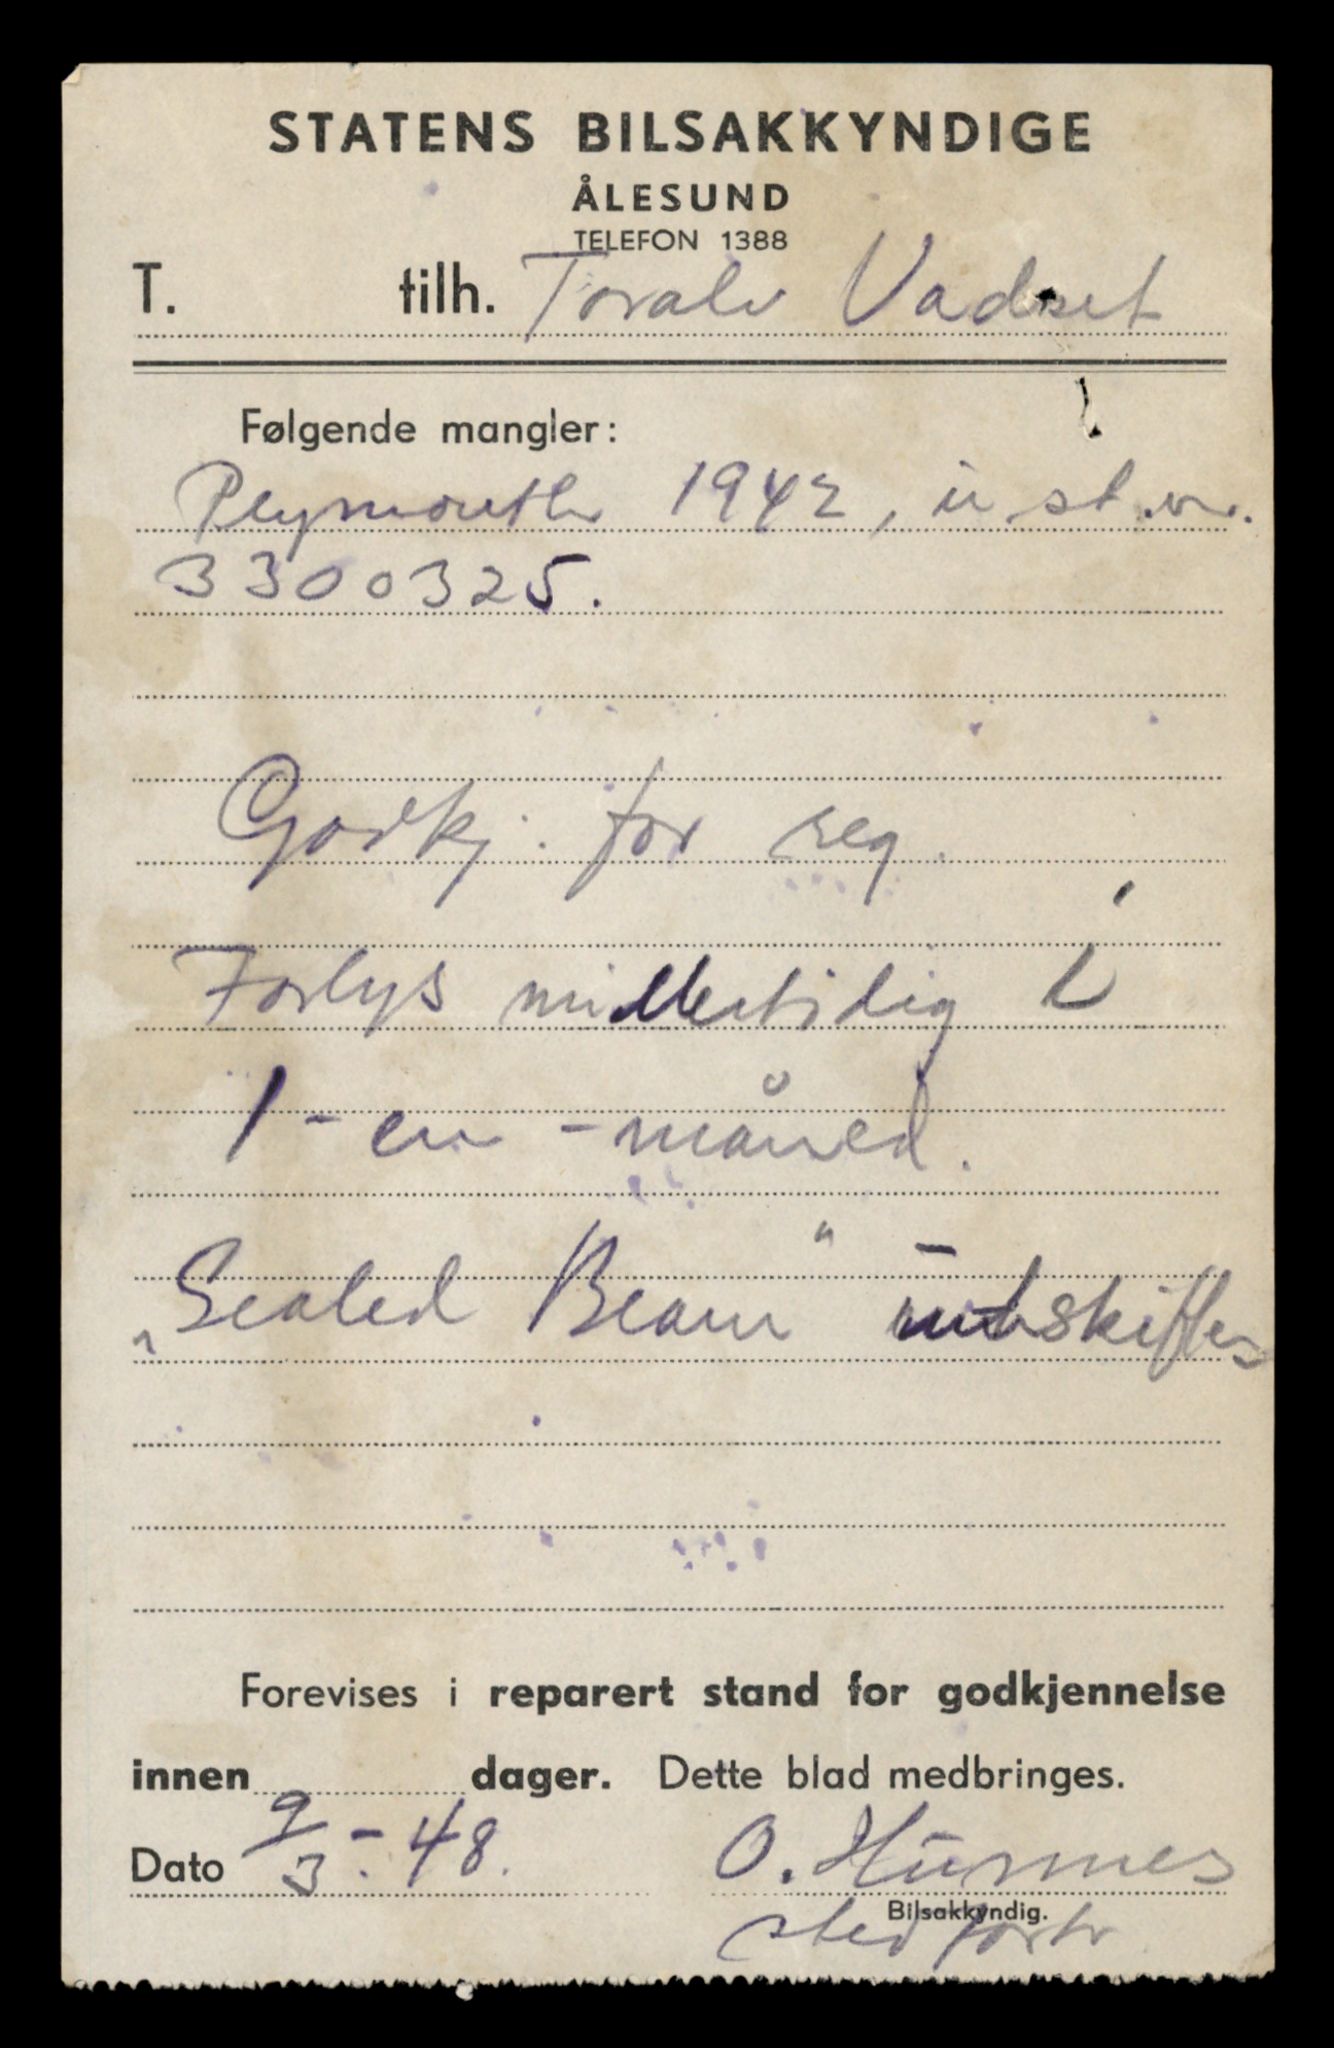 STATENS BILSAKKYNDIGE
ÅLESUND
TELEFON 1388
T. tilh. Toralv Vadset
Følgende mangler:
Plymouth 1942, u st.nr.
3300325.
Godkj. for reg.
Forlys midlertidig i
1 - en - måned.
„Sealed Beam" utskiftes
Forevises i reparert stand for godkjennelse
innen dager. Dette blad medbringes.
Dato 9/3 - 48. O.
Bilsakkyndig.
stedfortr